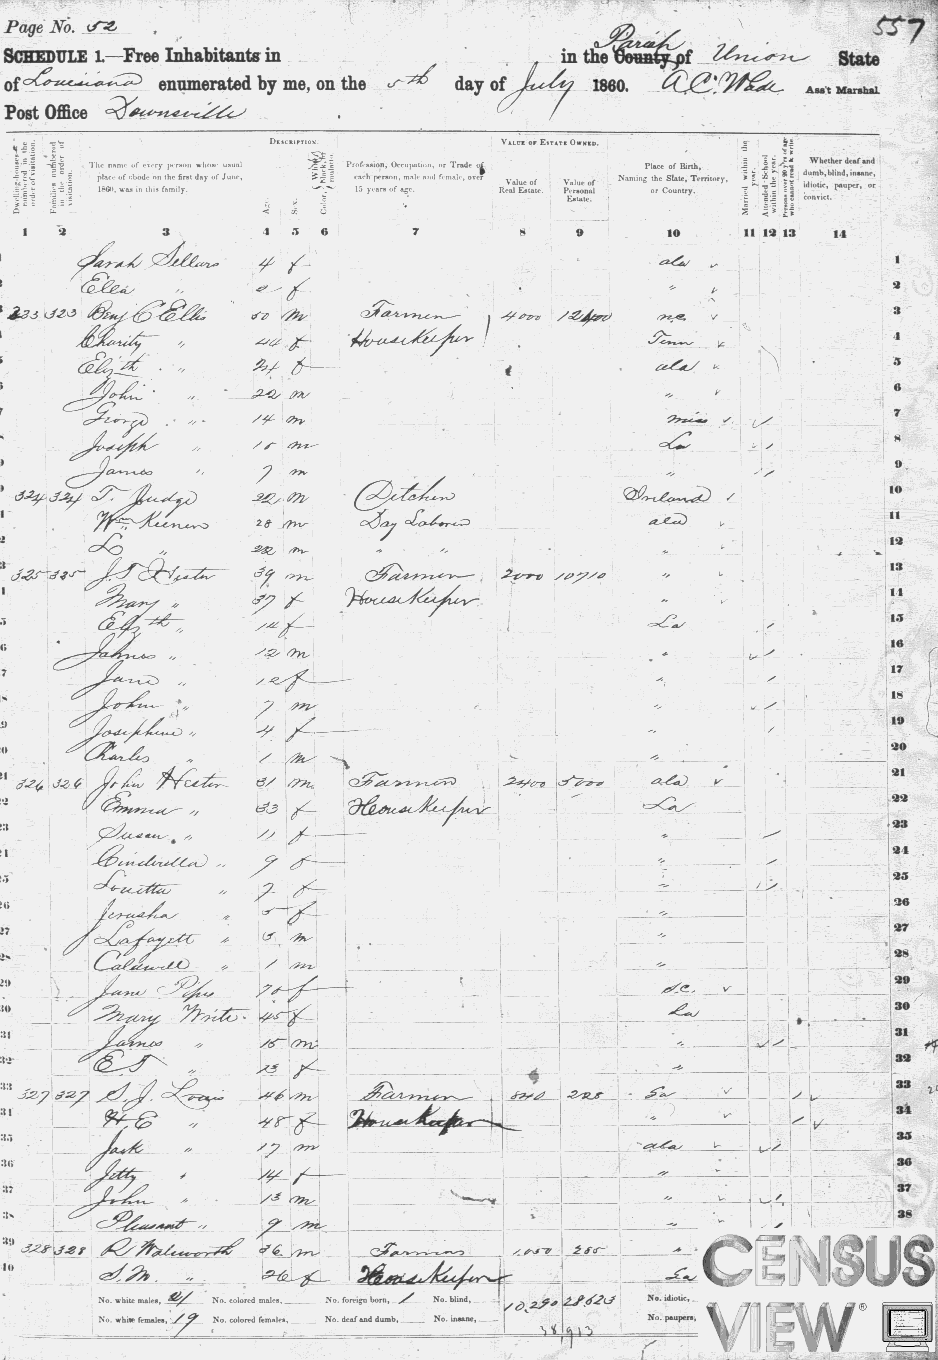 Page No. 52
557
SCHEDULE 1.—Free Inhabitants in in the County of Parish Union State
of Louisiana enumerated by me, on the 5th day of July 1860. A.C. Wade Ass't Marshal.
Post Office Downsville
DESCRIPTION. VALUE OF ESTATE OWNED.
Dwelling-houses numbered in the order of visitation.
Families numbered in the order of visitation.
The name of every person whose usual place of abode on the first day of June, 1860, was in this family.
Age.
Sex.
Profession, Occupation, or Trade of each person, male and female, over 15 years of age.
Value of Real Estate.
Value of Personal Estate.
Place of Birth, Naming the State, Territory, or Country.
Married within the year.
Attended School within the year.
Persons over 20 y'rs of age who cannot read & write.
Whether deaf and dumb, blind, insane, idiotic, pauper, or convict.
1 2 3 4 5 6 7 8 9 10 11 12 13 14
Sarah Sellers 4 f ala 1
Ella " 2 f " 2
323 323 Benj C Ellis 50 m Farmer 4000 12400 nc 3
Charity " 44 f HouseKeeper Tenn 4
Elizth " 24 f ala 5
John " 22 m " 6
George " 14 m miss 7
Joseph " 10 m La 8
James " 7 m " 9
324 324 T. Judge 22 m Ditcher Ireland 10
Wm Keenen 28 m Day Laborer ala 11
L " 22 m " " " 12
325 325 J.T Hester 39 m Farmer 2000 10710 " 13
Mary " 37 f HouseKeeper " 14
Elizth " 14 f La 15
James " 12 m " 16
Jane " 10 f " 17
John " 7 m " 18
Josephine " 4 f " 19
Charles " 1 m " 20
326 326 John Hester 31 m Farmer 2400 5000 ala 21
Emma " 33 f HouseKeeper La 22
Susan " 11 f " 23
Cinderella " 9 f " 24
Louetta " 7 f " 25
Jerusha " 5 f " 26
Lafayett " 3 m " 27
Caldwell " 1 m " 28
Jane Pipes 70 f S.C. 29
Mary Write 45 f La 30
James " 15 m " 31
E T " 13 f " 32
327 327 S. J. Louis 46 m Farmer 840 228 Ga 33
H.E " 48 f HouseKeeper " 34
Jack " 17 m ala 35
Jetty " 14 f " 36
John " 13 m " 37
Pleasant " 9 m " 38
328 328 R Walsworth 36 m Farmer 1,050 285 " 39
S.M. " 26 f HouseKeeper Ga 40
No. white males, 21 No. colored males, No. foreign born, 1 No. blind, 10,290 28,623 No. idiotic,
No. white females, 19 No. colored females, No. deaf and dumb, No. insane, No. paupers,
38,913
CENSUS
VIEW®